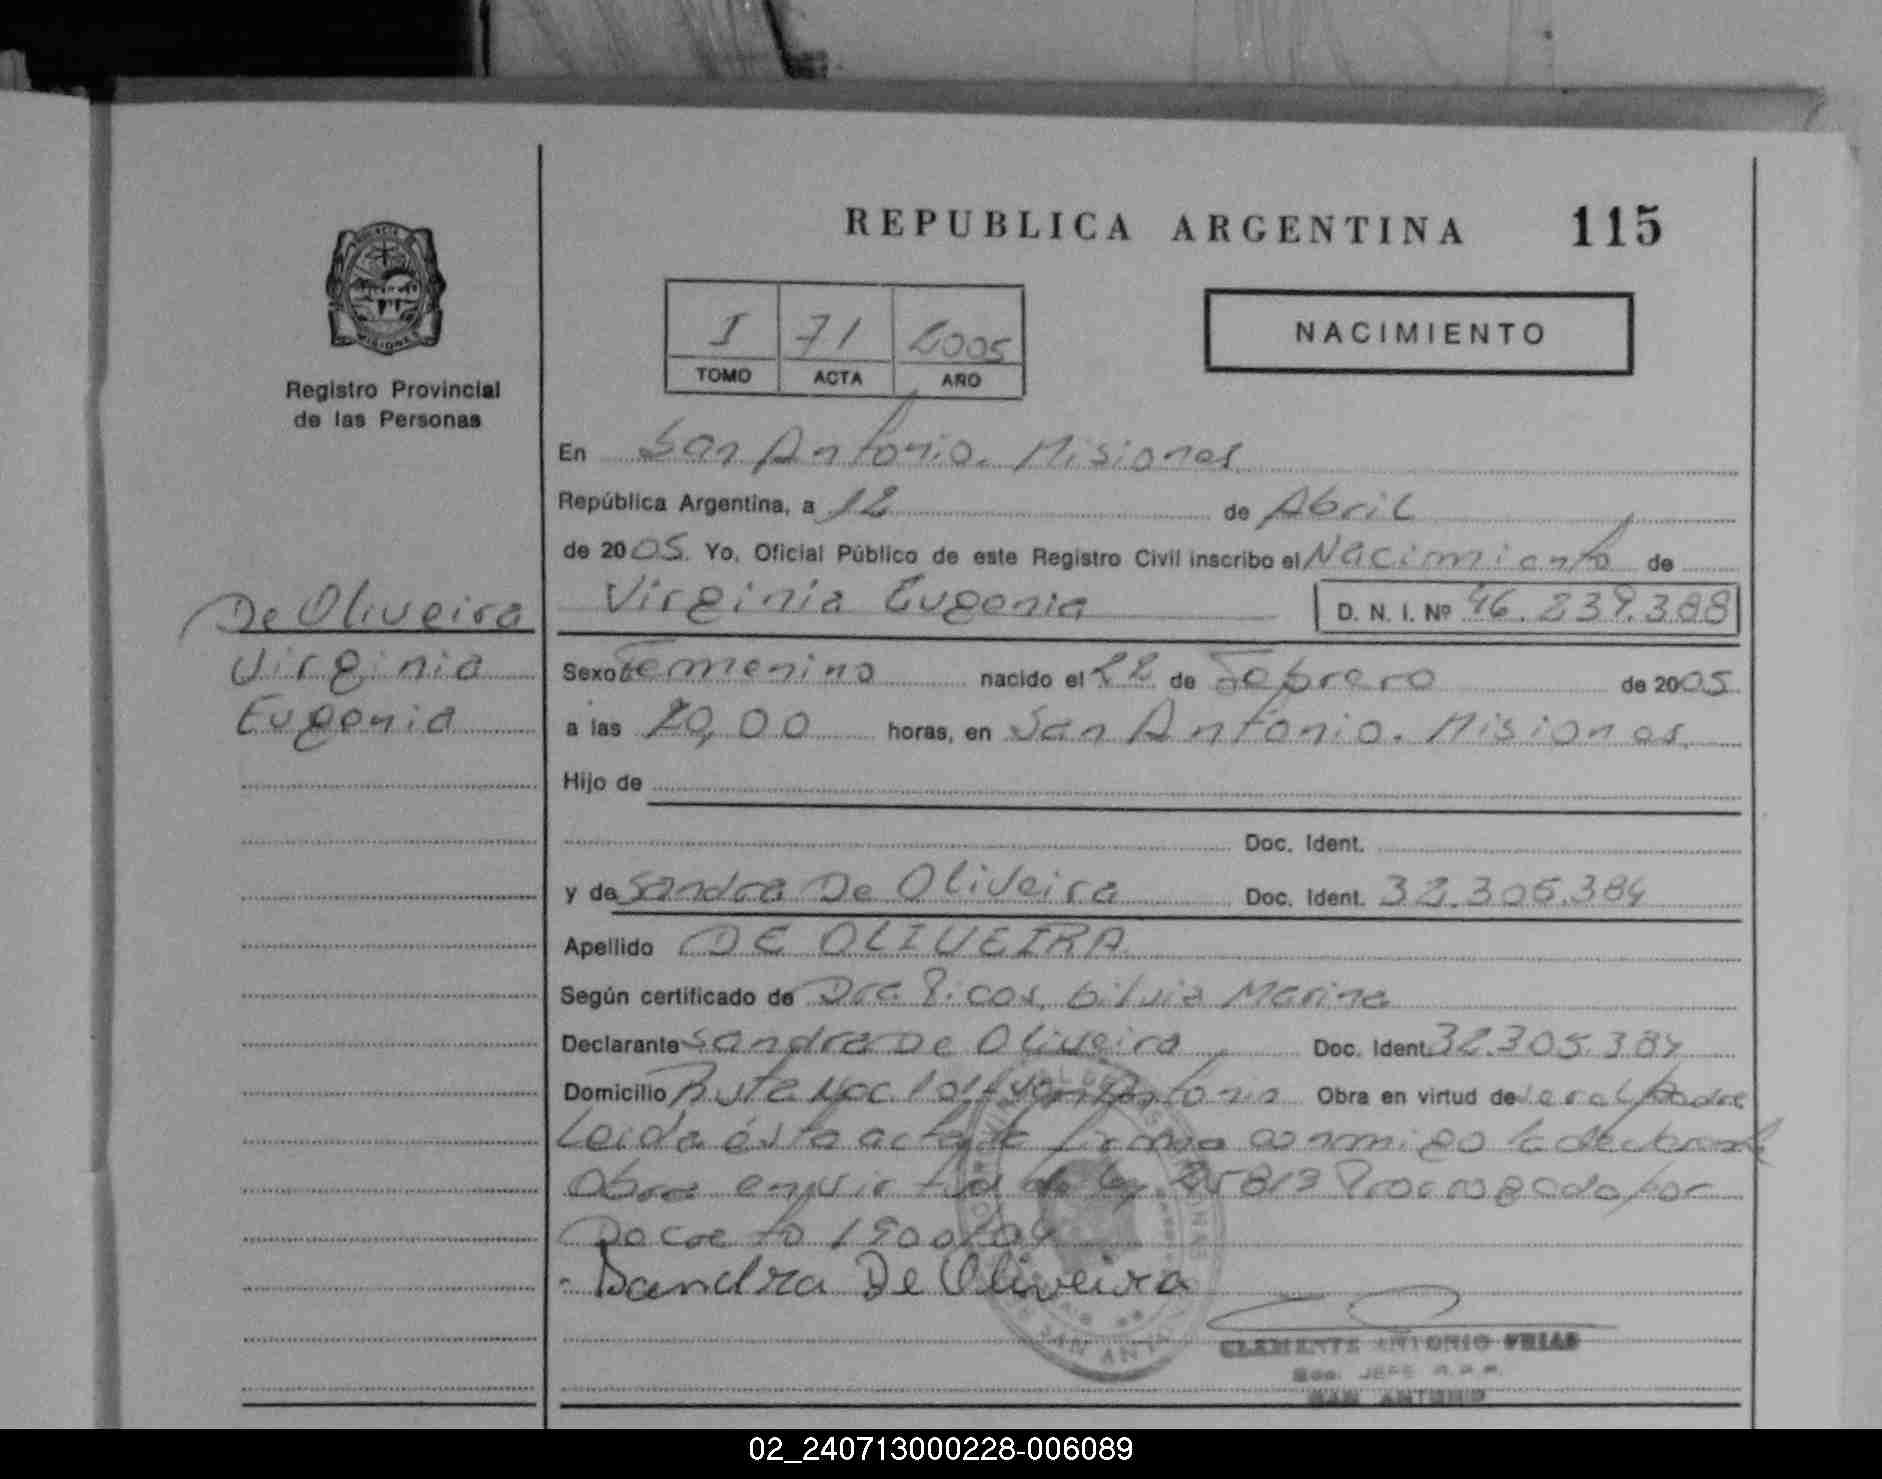 REPUBLICA ARGENTINA 115
I 71 2005
TOMO ACTA AÑO
NACIMIENTO
MISIONES
Registro Provincial
de las Personas
En San Antonio. Misiones
República Argentina, a 12 de Abril
de 2005. Yo, Oficial Público de este Registro Civil inscribo el Nacimiento de
De Oliveira
Virginia
Eugenia
Virginia Eugenia D. N. I. Nº 46.239.388
Sexo Femenino nacido el 22 de Febrero de 2005
a las 20,00 horas, en San Antonio. Misiones
Hijo de
Doc. Ident.
y de Sandra De Oliveira Doc. Ident. 32.305.384
Apellido DE OLIVEIRA
Según certificado de Dra Silvia Marina
Declarante Sandra De Oliveira Doc. Ident. 32.305.384
Domicilio Ruta Nac 101 San Antonio Obra en virtud de
Leida ésta acta la firma conmigo la declarante
Obra en virtud de ley 25813 Prorrogado por
Decreto 1900/04
Sandra De Oliveira
CLEMENTE ANTONIO FRIAS
JEFE
SAN ANTONIO
02_240713000228-006089